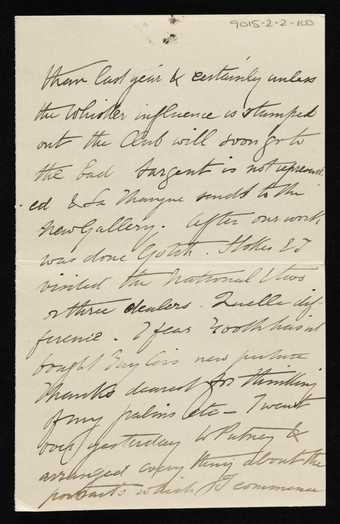 9015-2-2-100
than last year & certainly unless
the Whistler influence is stamped
out the Club will soon go to
the bad Sargent is not represent
ed & La Thangue sends to the
New Gallery. After our work
was done Gotch. Stokes & I
visited the National & two
or three dealers. Quelle dif
ference. I fear Tooth hasnt
bought Taylers new picture
Thanks dearest for thinking
of my palms etc - I went
over yesterday to Putney &
arranged everything about the
portraits which I commence